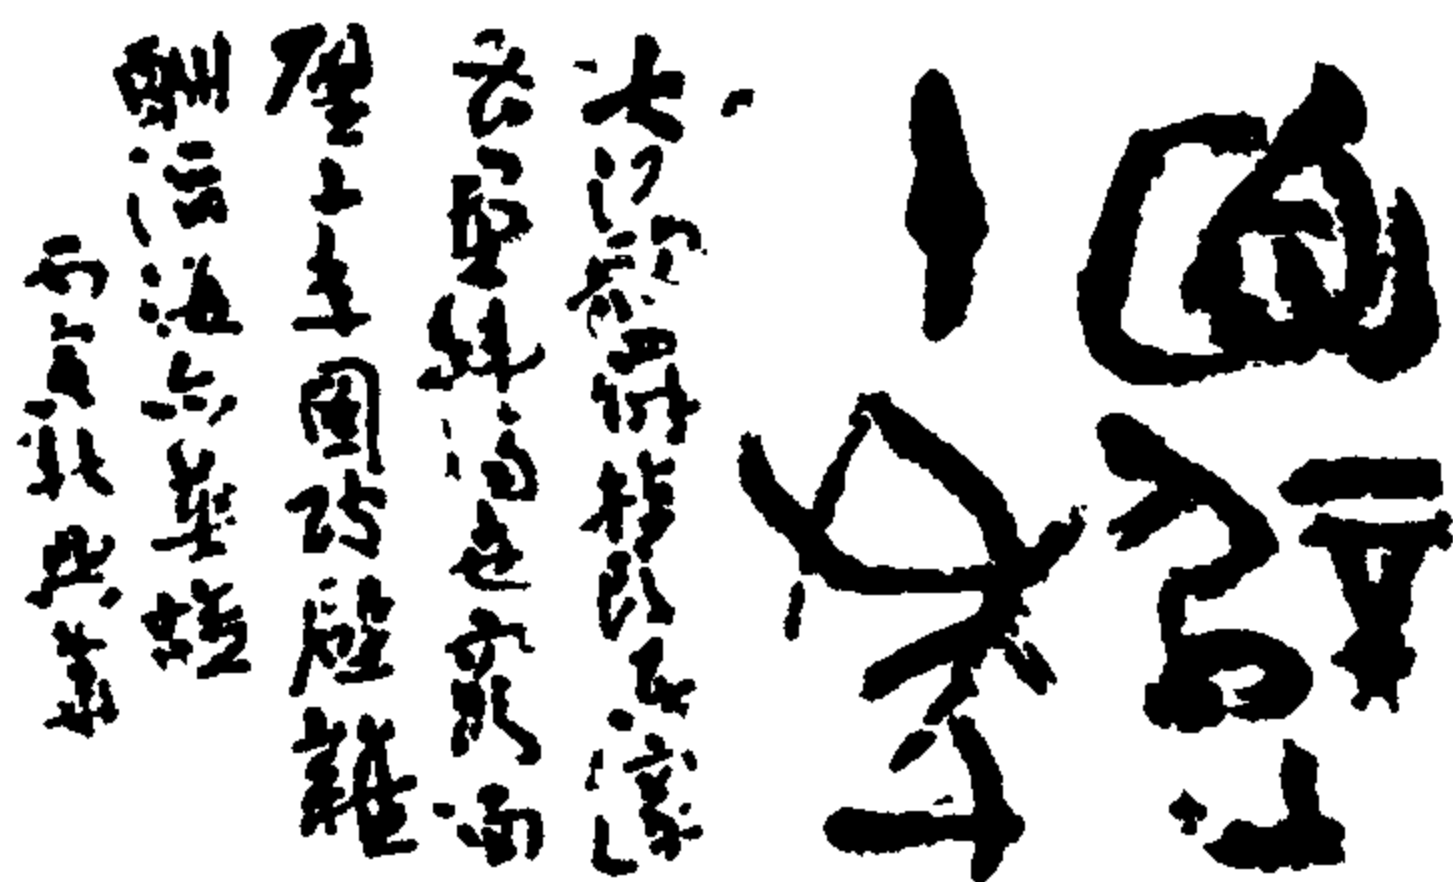 面壁
十年
大江歌罷掉頭東邃
密群科濟世窮面
壁十年圖破壁難
酬蹈海亦英雄
丙寅秋